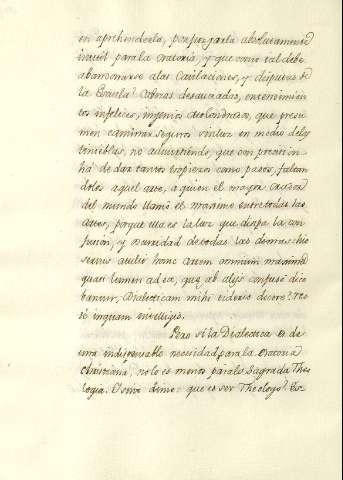 en aprehenderla, por juzgarla absolutamente
inutil para la oratoria, y que como tal debe
abandonarse a las Cavilaciones, y disputas de
la Escuela? Cabezas desauciadas, entendimien
tos infelices, ingenios atolondrados, que presu
men caminar seguros sin luz en medio de las
tinieblas, no advirtiendo, que con precision
hà de dar tantos tropiezos como pasos, faltan
doles aquel arte, a quien el mayor
del mundo llamò el maximo entre todas las
artes, porque ella es la luz que disipa la con
fusion, y variedad de todas las demas: hic
servus attulit hanc artem omnium maximam
quasi lumen ad ea, quæ ab aliis confusè dice
bantur, Dialecticam mihi videris dicere? rec
tè inquam intelligis.
Pero si la Dialectica es de
una indispensable necesidad, para la oratoria
christiana, no lo es menos para la Sagrada Theo
logia. Y sino dime: que es ser Theologo? Es